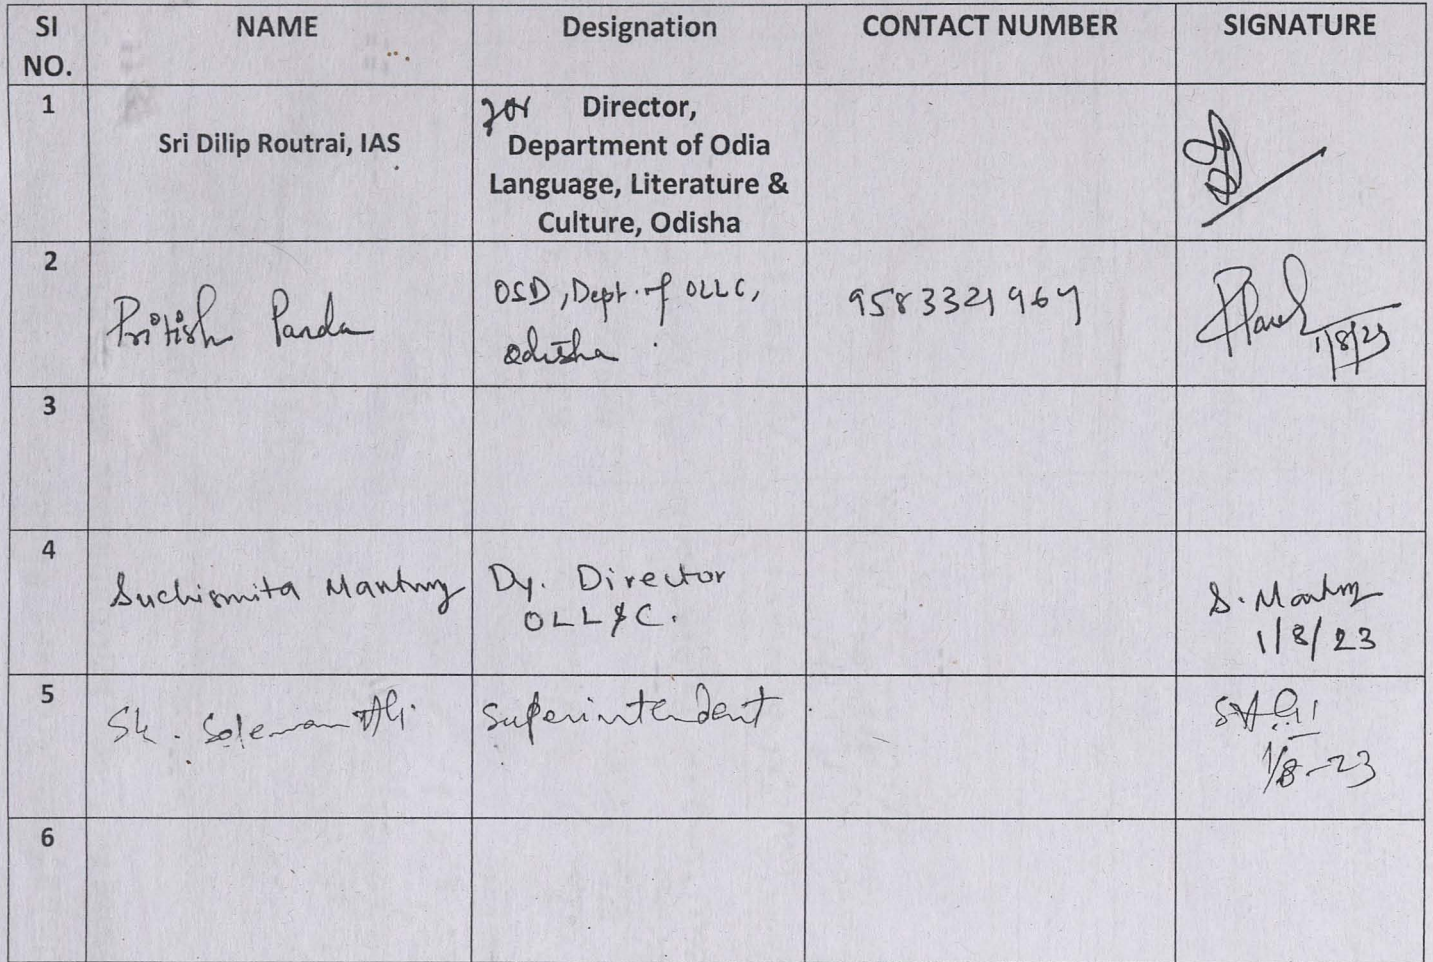 SI NO. NAME Designation CONTACT NUMBER SIGNATURE
1 Sri Dilip Routrai, IAS
for Director,
Department of Odia
Language, Literature &
Culture, Odisha
2 Pritish Panda
OSD, Dept. of OLLC,
Odisha.
9583321967
1/8/23
3
4 Suchismita Mantry
Dy. Director
OLL&C.
S. Mantry
1/8/23
5 Sk. Soleman Ali
Superintendent
SAli
1/8-23
6